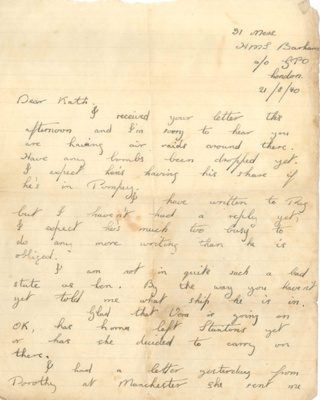 31 Mess
HMS Barham
c/o GPO
London.
21/8/40
Dear Kath.
I received your letter this
afternoon and I'm sorry to hear you
are having air raids around there.
Have any bombs been dropped yet.
I expect hens having his share if
he's in Pompey.
I have written to Reg
but I haven't had a reply yet,
I expect hes much too busy to
do any more writing than he is
obliged.
I am not in quite such a bad
state as Len. By the way you haven't
yet told me what ship he is in.
Glad that Vera is going on
OK, has  left  yet
or has she decided to carry on
there.
I had a letter yesterday from
Dorothy at Manchester she sent me